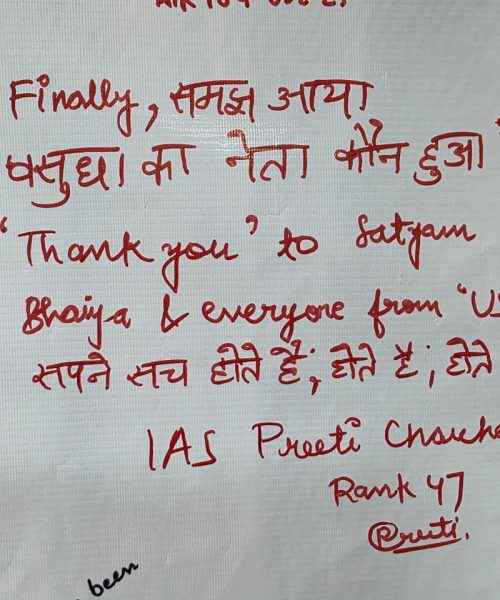 Finally, समझ आया
वसुधा का नेता कौन हुआ "
'Thank you' to Satyam
Bhaiya & everyone from "US
सपने सच होते हैं; होते है; होते
IAS Preeti Chauha
Rank 47
Preeti.
been